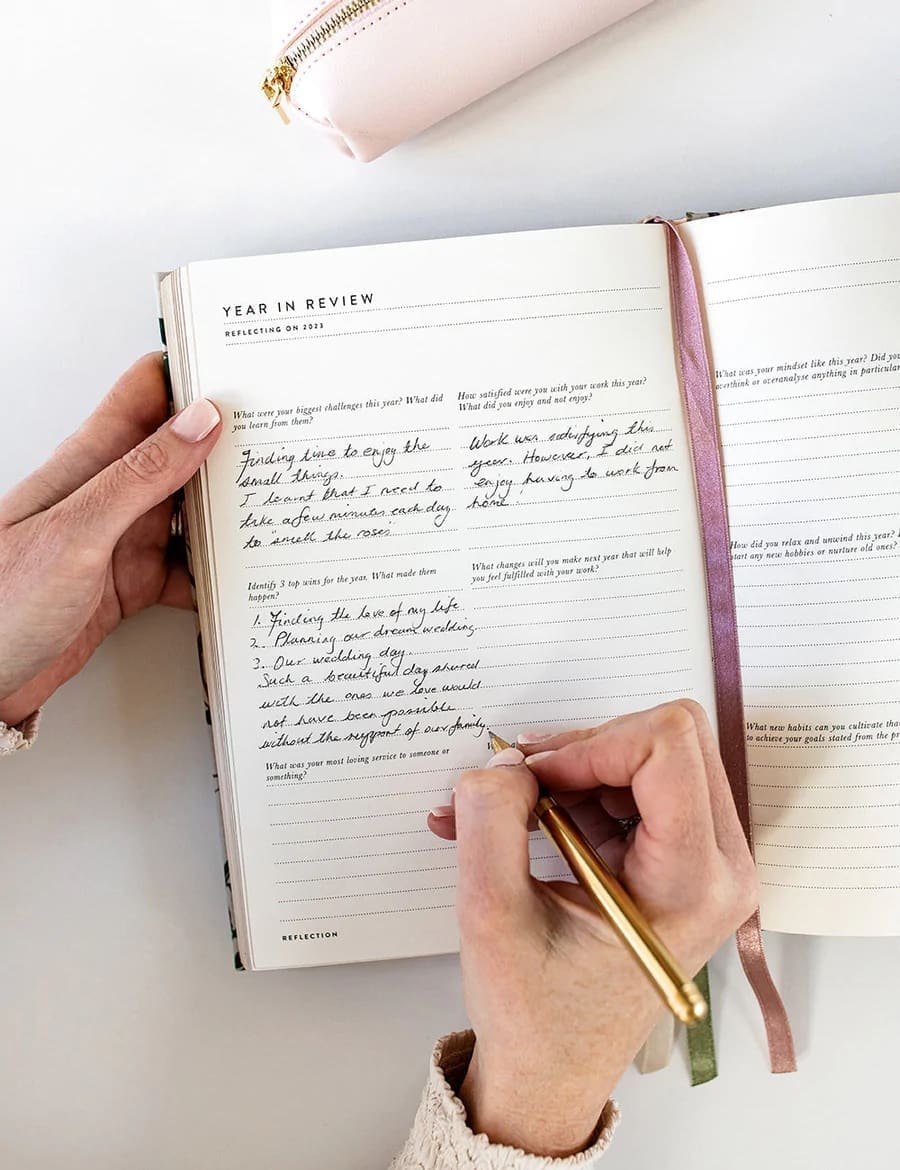 YEAR IN REVIEW
REFLECTING ON 2023
What were your biggest challenges this year? What did
you learn from them?
Finding time to enjoy the
small things.
I learnt that I need to
take a few minutes each day
to "smell the roses"
Identify 3 top wins for the year. What made them
happen?
1. Finding the love of my life
2. Planning our dream wedding
3. Our wedding day.
Such a beautiful day shared
with the ones we love would
not have been possible
without the support of our family.
What was your most loving service to someone or
something?
REFLECTION
How satisfied were you with your work this year?
What did you enjoy and not enjoy?
Work was satisfying this
year. However, I did not
enjoy having to work from
home!
What changes will you make next year that will help
you feel fulfilled with your work?
What was your mindset like this year? Did you
overthink or overanalyse anything in particular
How did you relax and unwind this year?
start any new hobbies or nurture old ones?
What new habits can you cultivate
to achieve your goals stated from the